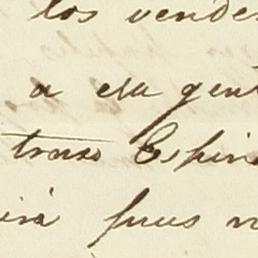 los vende
a esa gent
traxo Espin
irá pues n